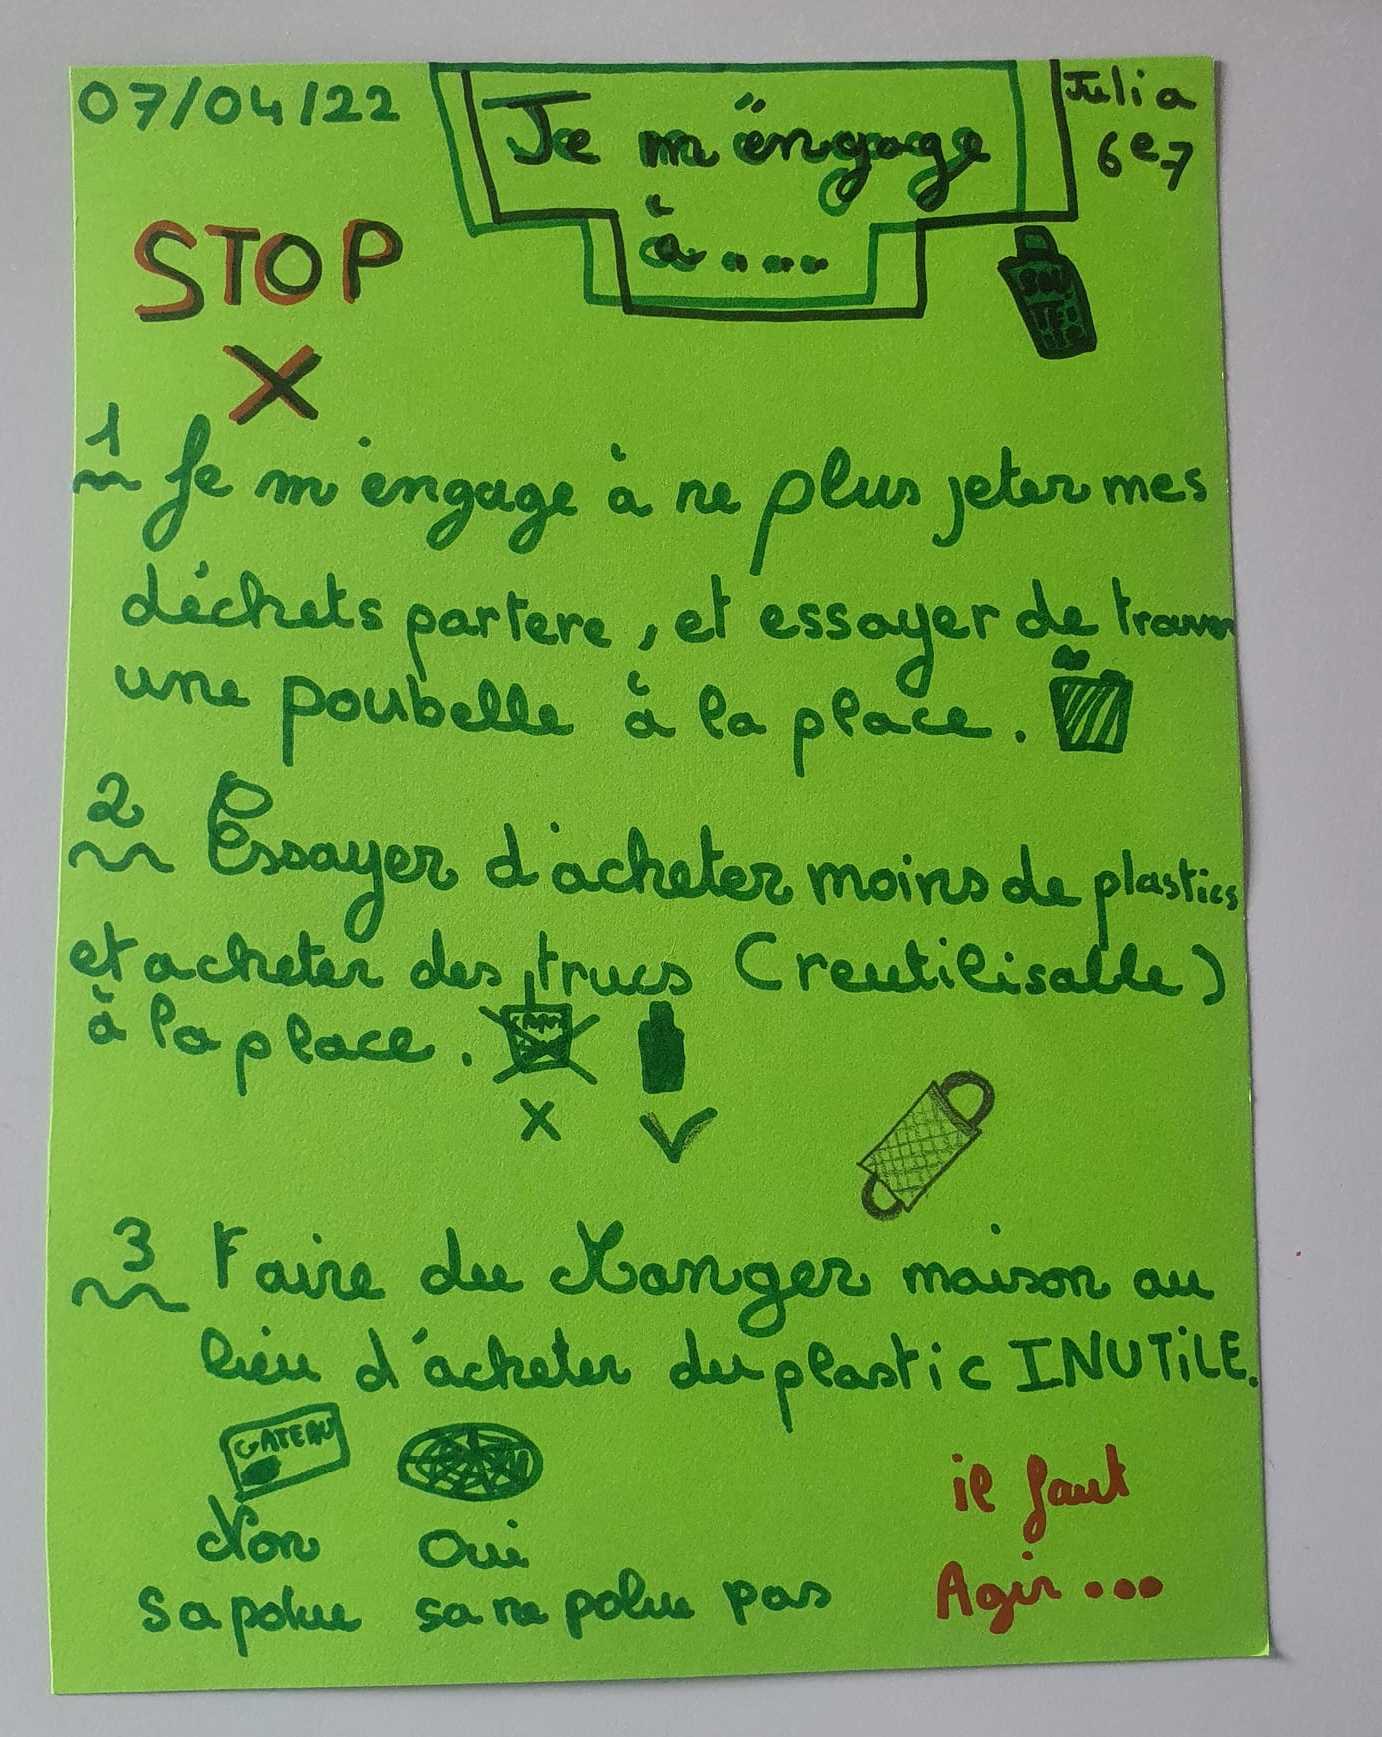 07/04/22
Je m'engage
à....
Julia
6e7
STOP
X
1 Je m'engage à ne plus jeter mes
déchets partere, et essayer de trouver
une poubelle à la place.
2 Essayer d'acheter moins de plastics
et acheter des trucs (reutilisable)
à la place.
3 Faire du Manger maison au
lieu d'acheter du plastic INUTiLE.
GATEAU
Non Oui
sa polue sa ne polue pas
il faut
Agir...